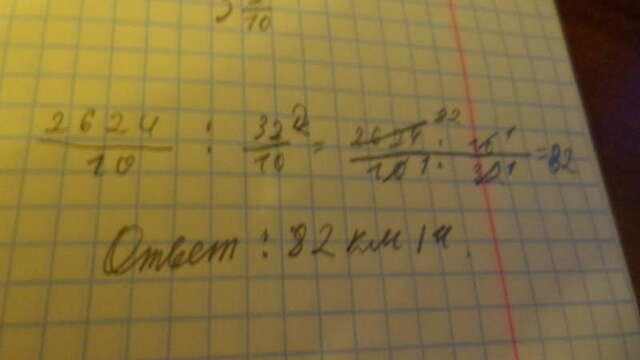 10
2624/10 : 32/10 = 2624 82 · 10 1/10 1 · 32 1 = 82
Ответ : 82 км/ч.